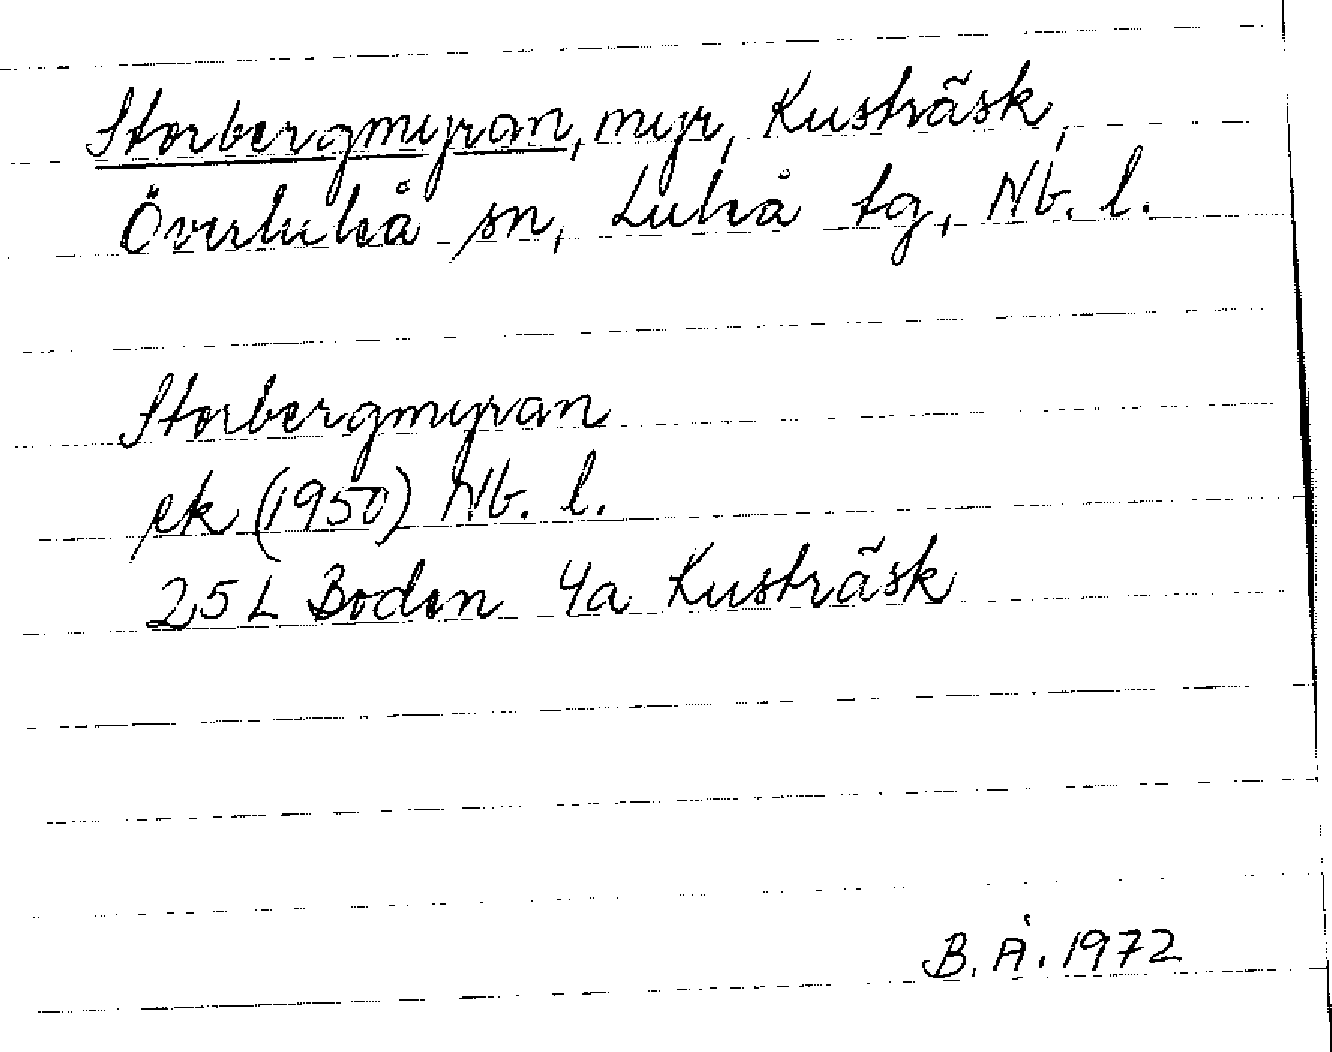 Storbergmyran, myr, Kusträsk,
Överluleå sn, Luleå tg, Nb. l.
Storbergmyran
ek (1950) Nb. l.
25L Boden 4a Kusträsk
B. Å. 1972